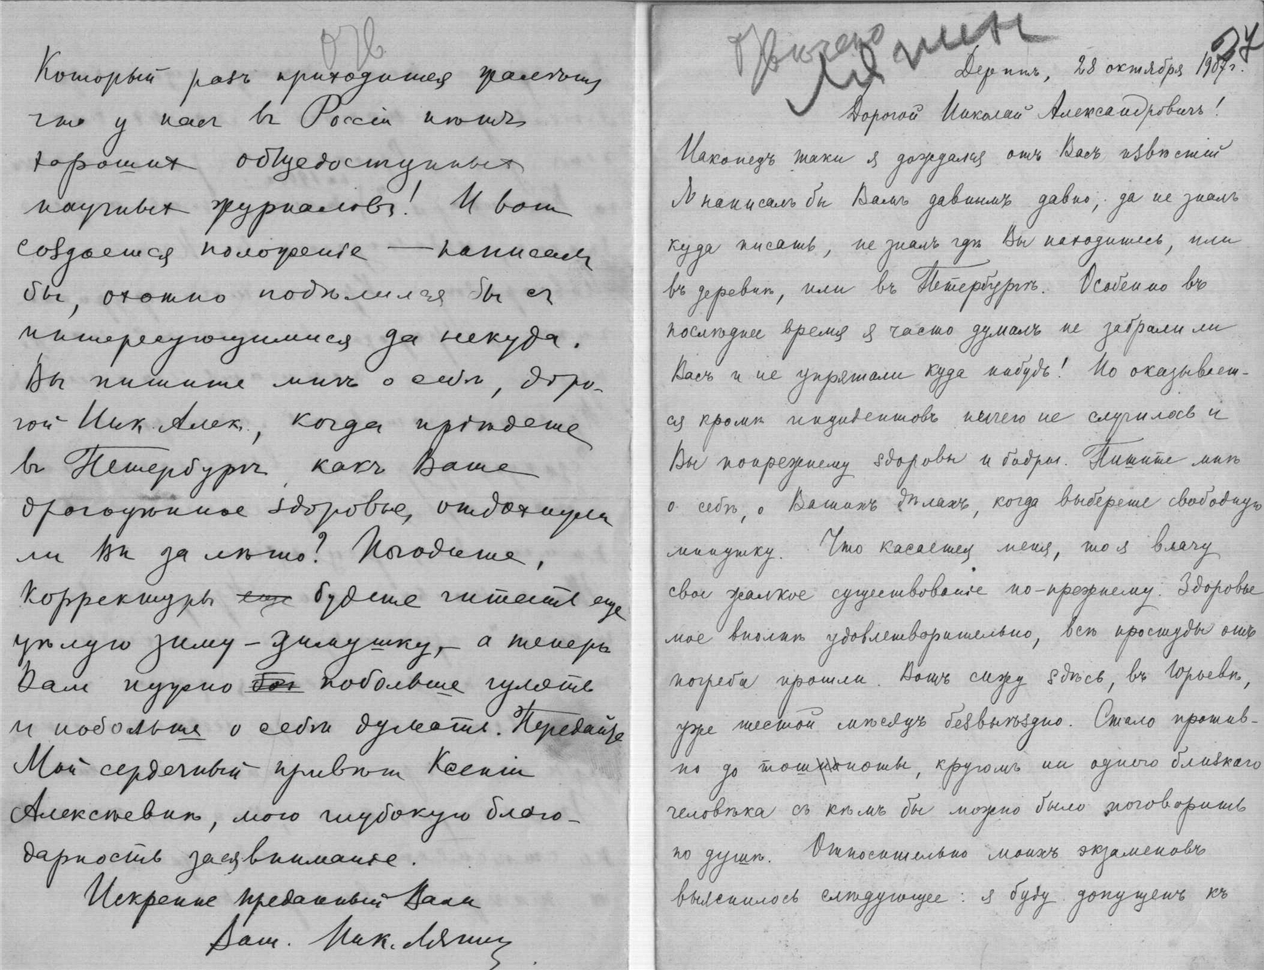 Который разъ приходится жалѣть,
что у насъ въ Россіи нѣтъ
хорошихъ общедоступныхъ
научныхъ журналовъ! И вотъ
создается положеніе — написалъ
бы, охотно подѣлился бы съ
интересующимися да некуда.
Вы пишите мнѣ о себѣ, доро-
гой Ник. Алек., когда пріѣдете
въ Петербургъ, какъ Ваше
драгоцѣнное здоровье, отдохнули
ли Вы за лѣто? Погодите,
корректуры еще будете читать еще
цѣлую зиму – зимушку, – а теперь
Вам нужно побольше гулять
и побольше о себѣ думать. Передайте
Мой сердечный привѣтъ Ксеніи
Алексѣевнѣ, мою глубокую благо-
дарность за ея вниманіе.
Искренне преданный Вамъ
Ваш. Ник. Лягин
отв
Отвѣчено
Лягин
27
Дерптъ, 28 октября 1907 г.
Дорогой Николай Александровичъ!
Наконецъ таки я дождался отъ Васъ извѣстій
Я написалъ бы Вамъ давнымъ давно, да не зналъ
куда писать, не зналъ гдѣ Вы находитесь, или
въ деревнѣ, или въ Петербургѣ. Особенно въ
послѣднее время я часто думалъ не забрали ли
Васъ и не упрятали куда нибудь! Но оказывает-
ся кромѣ инцидентовъ ничего не случилось и
Вы попрежнему здоровы и бодры. Пишите мнѣ
о себѣ, о Вашихъ дѣлахъ, когда выберете свободную
минутку. Что касается меня, то я влачу
свое жалкое существованіе по-прежнему. Здоровье
мое вполнѣ удовлетворительно, всѣ простуды отъ
погреба прошли. Вотъ сижу здѣсь, въ Юрьевѣ,
уже шестой мѣсяцъ безвыѣздно. Стало против-
но до тошноты, кругомъ ни одного близкаго
человѣка съ кѣмъ бы можно было поговорить
по душѣ. Относительно моихъ экзаменовъ
выяснилось слѣдующее: я буду допущенъ къ